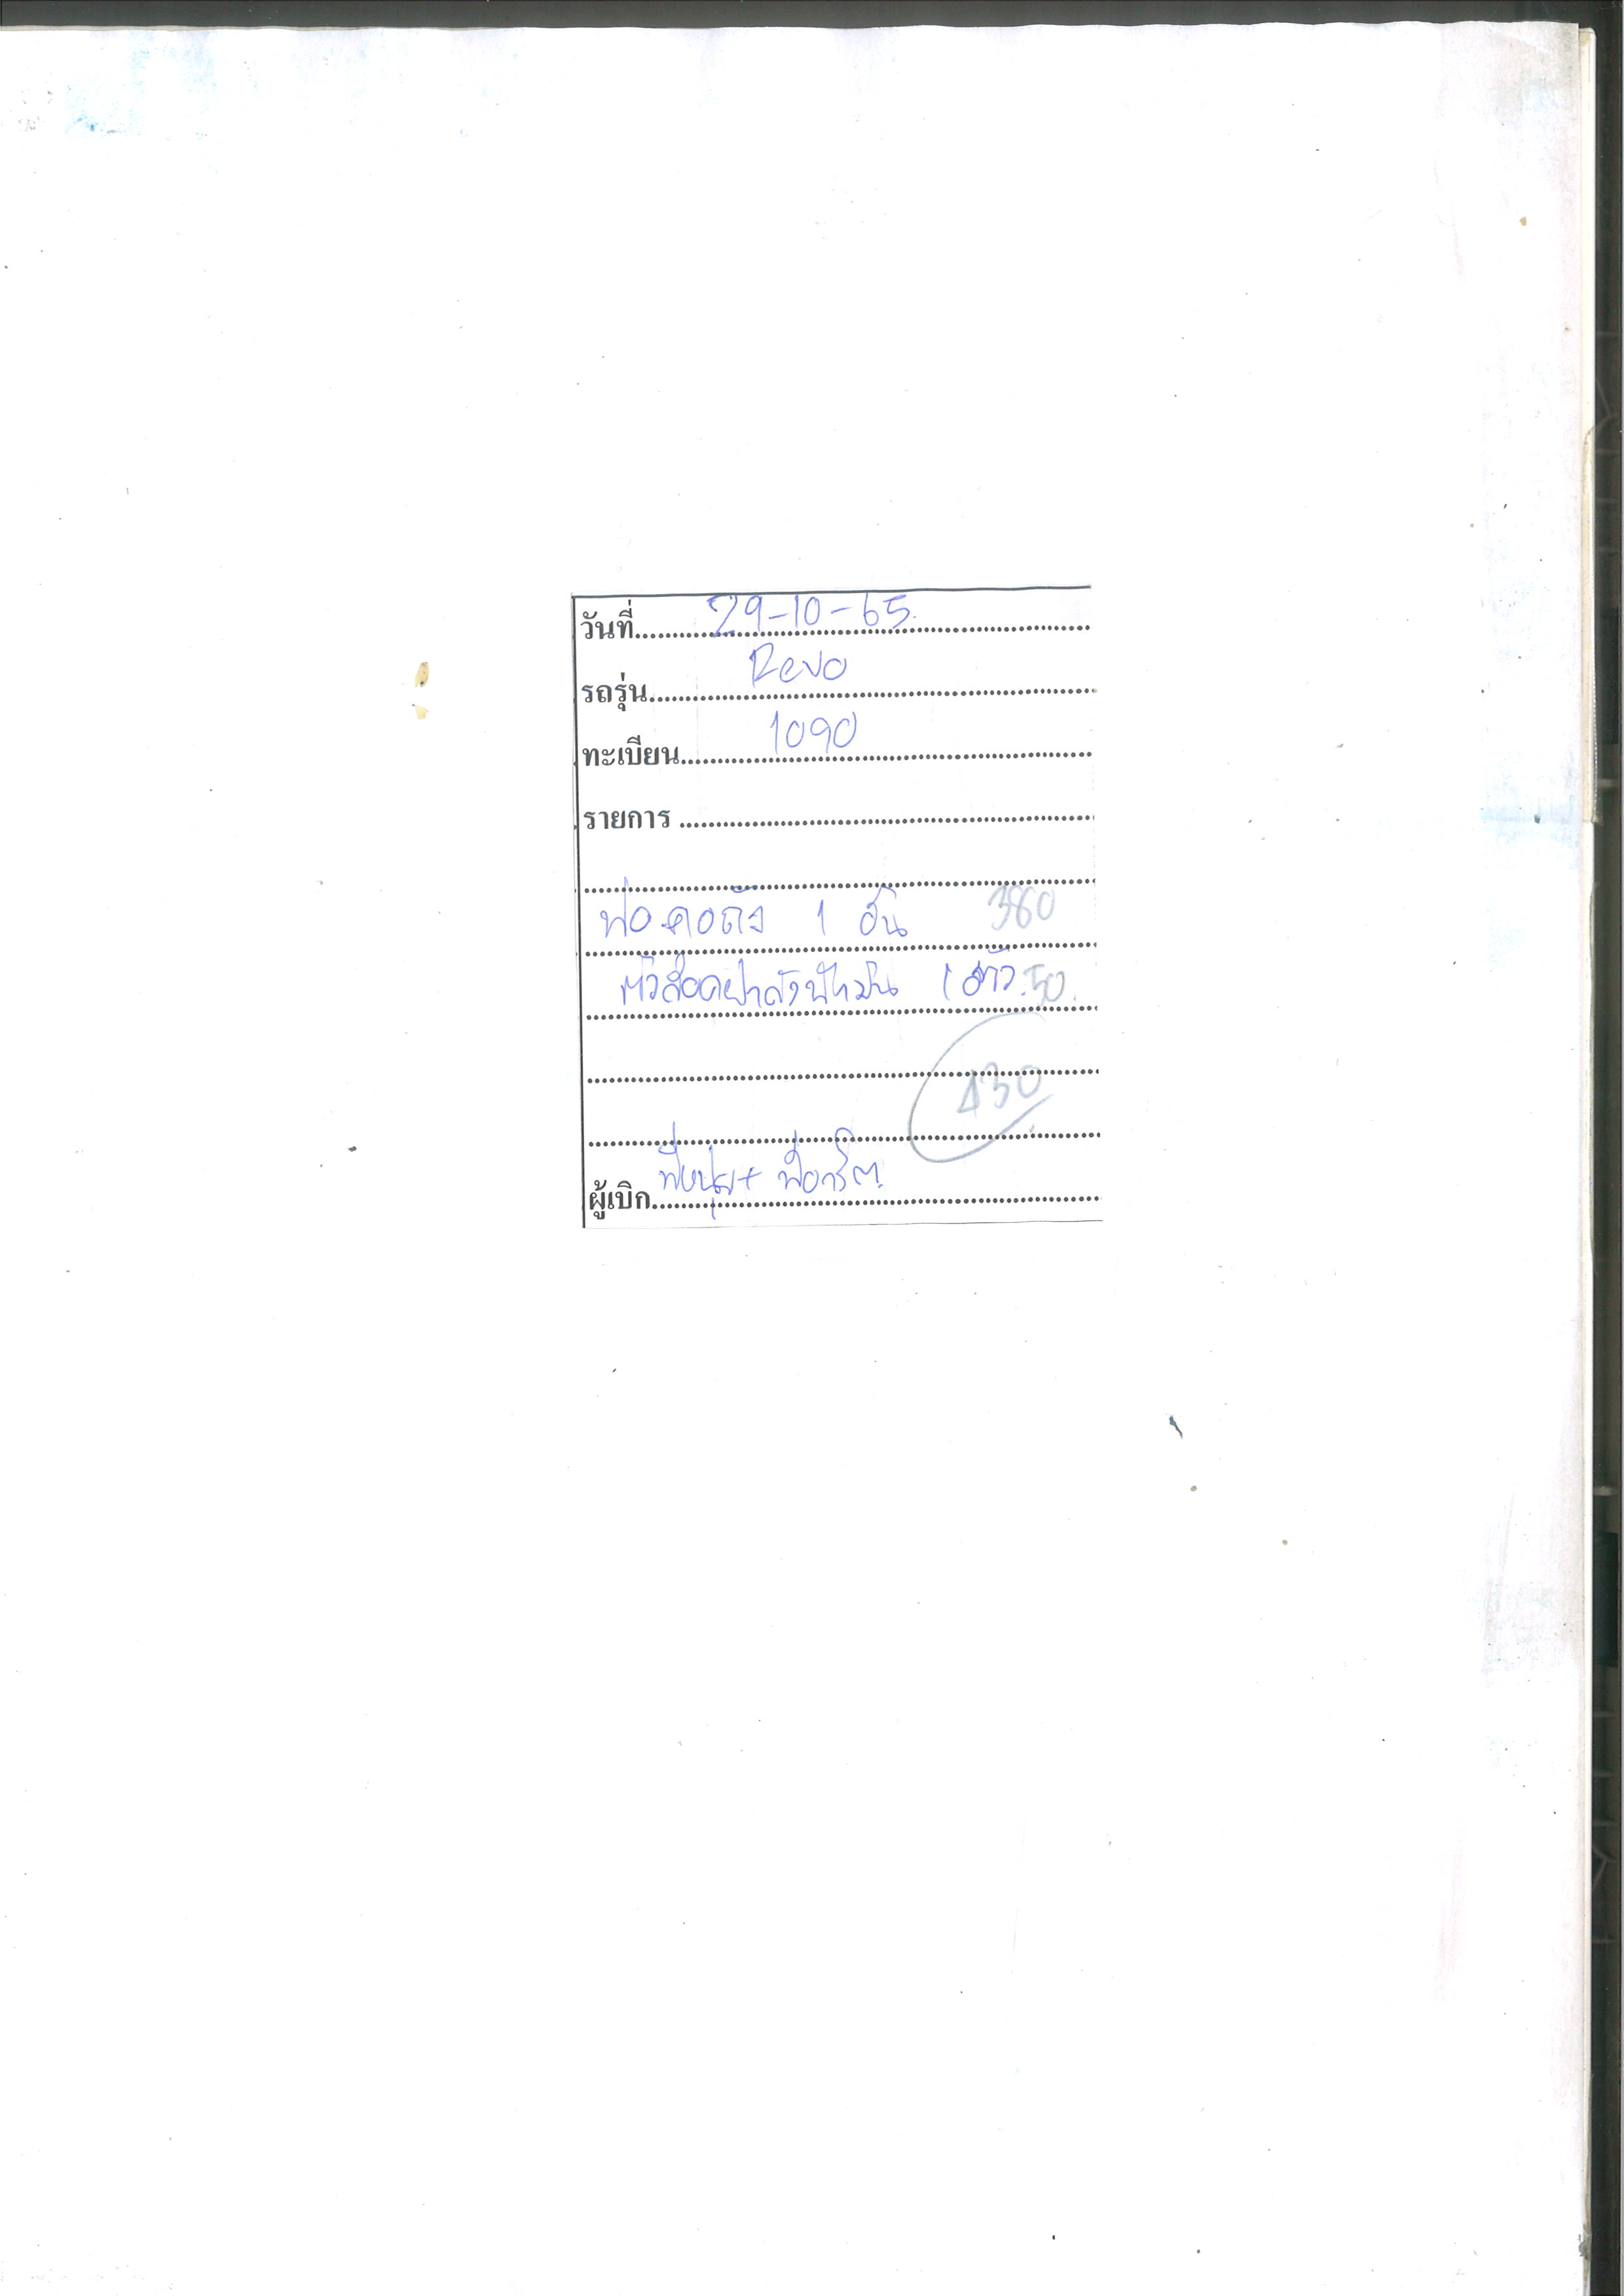 วันที่ 29-10-65.
รถรุ่น Revo
ทะเบียน 1090
รายการ
ท่อคอถัง 1 อัน 380
ตัวล็อคฝาถังน้ำมัน 1 ตัว 50.
430
ผู้เบิก พี่หนุ่ม +